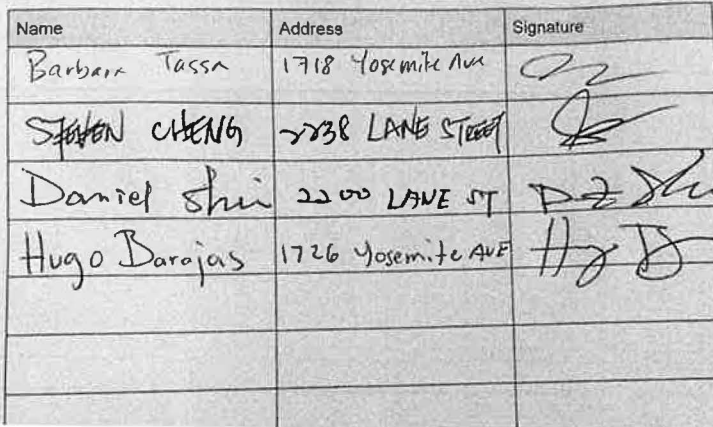 Name Address Signature
Barbara Tassa 1718 Yosemite Ave
STEVEN CHENG 2238 LANE STREET
Daniel Shin 2200 LANE ST
Hugo Barajas 1726 Yosemite AVE